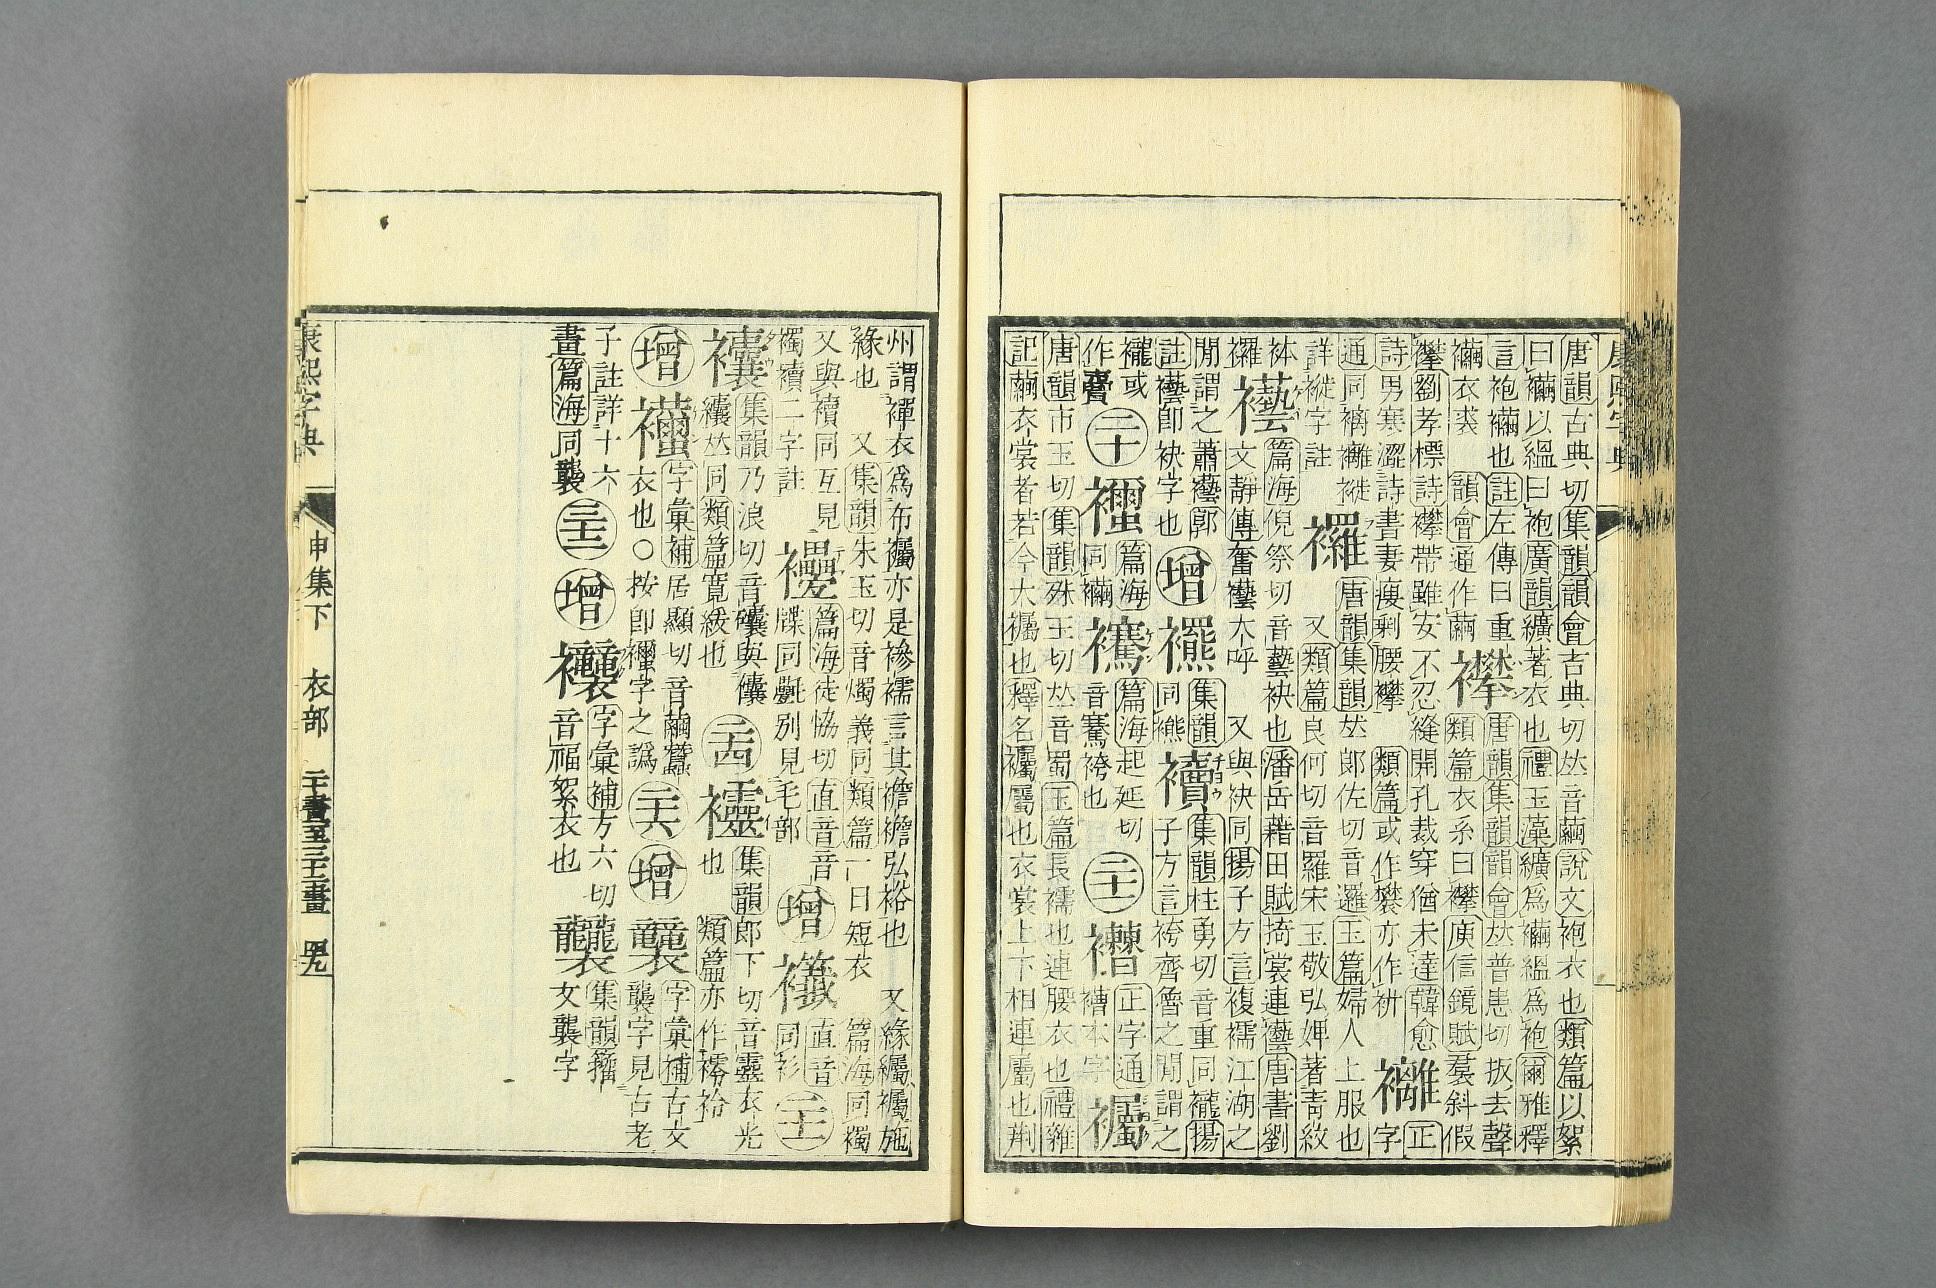 康熙字典
唐韻古典切集韻韻會吉典切𠀤音繭說文袍衣也類篇以絮
曰襺以緼曰袍廣韻纊著衣也禮玉藻纊爲襺緼爲袍爾雅釋
言袍襺也註左傳曰重
襺衣裘 韻會通作繭
襻
唐韻集韻韻會𠀤普患切扳去聲
類篇衣系曰襻庾信鏡賦裙斜假
襻劉孝標詩襻帶雖安不忍縫開孔裁穿猶未達韓愈
詩男寒澀詩書妻瘦剩腰襻 類篇或作 亦作袢
正
字
通同褵 褷
詳褷字註
唐韻集韻𠀤郎佐切音邏玉篇婦人上服也
又類篇良何切音羅宋玉敬弘婢著靑紋
襼
篇海倪祭切音藝袂也潘岳藉田賦掎裳連襼唐書劉
文靜傳奮襼大呼 又與袂同揚子方言複襦江湖之
閒謂之 襼郭
註襼卽袂字也
增
集韻
同
襩
チヨウ
集韻柱勇切音重同襱揚
子方言袴齊魯之閒謂之
襱或
作
二十
篇海
同襺
篇海起延切
音騫袴也
二十一
正字通
本字
唐韻市玉切集韻殊玉切𠀤音蜀玉篇長襦也連腰衣也禮雜
記繭衣裳者若今大 也釋名 屬也衣裳上下相連屬也荆
州謂襌衣爲布 亦是襂襦言其襜襜弘裕也 又緣 施
緣也 又集韻朱玉切音燭義同類篇一曰短衣 篇海同襡
又與襩同互見
襡襩二字註
篇海徒恊切直音音
牒同氎別見毛部
增
直音
同衫
二十二
集韻乃浪切音 與儾
纕𠀤同類篇寬緩也
二十四
集韻郎下切音靈衣光
也 類篇亦作䙥袷
增
字彙補居顯切音繭蠶
衣也○按卽 字之譌
二十六
增
字彙補古文
襲字見古老
子註詳十六
畫篇海同襲
三十二
增
字彙補方六切
音福絮衣也
集韻籀
文襲字
康熙字典
申集下 衣部 二十畫至三十二畫 四九